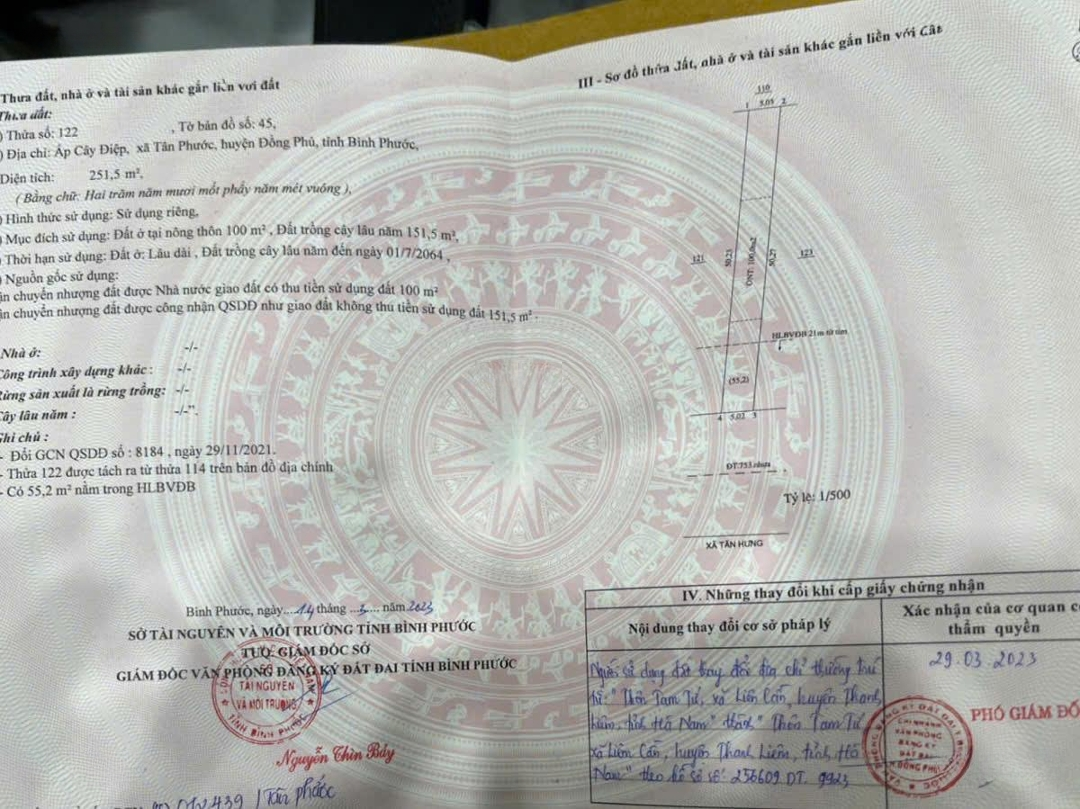 Thửa đất, nhà ở và tài sản khác gắn liền với đất
Thửa đất:
) Thửa số: 122 , Tờ bản đồ số: 45,
) Địa chỉ: Ấp Cây Điệp, xã Tân Phước, huyện Đồng Phú, tỉnh Bình Phước,
Diện tích: 251,5 m²,
( Bằng chữ: Hai trăm năm mươi mốt phẩy năm mét vuông ),
) Hình thức sử dụng: Sử dụng riêng,
) Mục đích sử dụng: Đất ở tại nông thôn 100 m² , Đất trồng cây lâu năm 151,5 m²,
) Thời hạn sử dụng: Đất ở: Lâu dài , Đất trồng cây lâu năm đến ngày 01/7/2064 ,
) Nguồn gốc sử dụng:
ận chuyển nhượng đất được Nhà nước giao đất có thu tiền sử dụng đất 100 m²
ận chuyển nhượng đất được công nhận QSDĐ như giao đất không thu tiền sử dụng đất 151,5 m² .
Nhà ở: -/-
Công trình xây dựng khác : -/-
Rừng sản xuất là rừng trồng: -/-
Cây lâu năm : -/-".
Ghi chú :
- Đổi GCN QSDĐ số : 8184 , ngày 29/11/2021.
- Thửa 122 được tách ra từ thửa 114 trên bản đồ địa chính
- Có 55,2 m² nằm trong HLBVĐB
Bình Phước, ngày....14 tháng ...3...., năm 2023
SỞ TÀI NGUYÊN VÀ MÔI TRƯỜNG TỈNH BÌNH PHƯỚC
TUQ. GIÁM ĐỐC SỞ
GIÁM ĐỐC VĂN PHÒNG ĐĂNG KÝ ĐẤT ĐAI TỈNH BÌNH PHƯỚC
TÀI NGUYÊN
VÀ MÔI TRƯỜNG
TỈNH BÌNH PHƯỚC
Nguyễn Thìn Bảy
439 / Tân phước
III - Sơ đồ thửa đất, nhà ở và tài sản khác gắn liền với đất
110
1 5.05 2
121
50.21
ONT: 100.0m2
50.27
123
HLBVĐB 21m từ tim
(55,2)
4 5.02 3
ĐT.753 nhựa
Tỷ lệ: 1/500
XÃ TÂN HƯNG
IV. Những thay đổi khi cấp giấy chứng nhận
Nội dung thay đổi cơ sở pháp lý
Xác nhận của cơ quan c
thẩm quyền
Người sử dụng đất thay đổi địa chỉ thường trú
từ: " Thôn Tam Tứ, xã Liên Cần, huyện Thanh
Liêm, tỉnh Hà Nam " thành " Thôn Tam Tứ
xã Liêm Cần, huyện Thanh Liêm, tỉnh Hà
Nam " theo hồ sơ số: 256609.DT. 9923
29.03.2023
PHÓ GIÁM ĐỐ
CHI NHÁNH
VĂN PHÒNG
ĐĂNG KÝ
ĐẤT ĐAI
ĐỒNG PHÚ